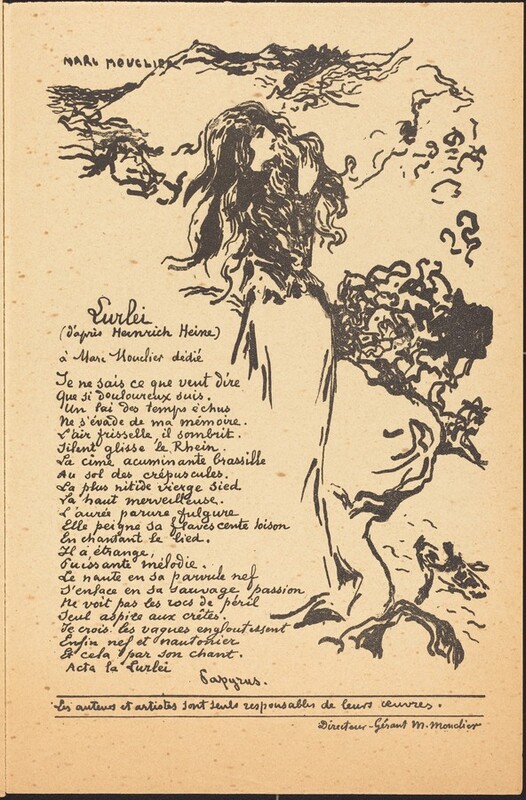 MARC MOUCLIER
Lurlei
(d'après Heinrich Heine)
à Marc Mouclier dédié
Je ne sais ce que veut dire
Que si douloureux suis.
Un lai des temps échus
Ne s'évade de ma mémoire.
L'air frisselle, il sombrit.
Silent glisse le Rhein.
La cime acuminante brassille
Au sol des crépuscules.
La plus nitide vierge sied
Là haut merveilleuse.
L'aurée parure fulgure
Elle peigne sa flavescente toison
En chantant le lied.
Il a étrange,
Puissante mélodie.
Le naute en sa parvule nef
S'enlace en sa sauvage passion
Ne voit pas les rocs de péril
Seul aspice aux crêtes.
Je crois les vagues engloutissent
Enfin nef et nautonier
Et cela par son chant.
Acta la Lurlei
Papyrus.
Les auteurs et artistes sont seuls responsables de leurs œuvres.
Directeur-Gérant M. Mouclier